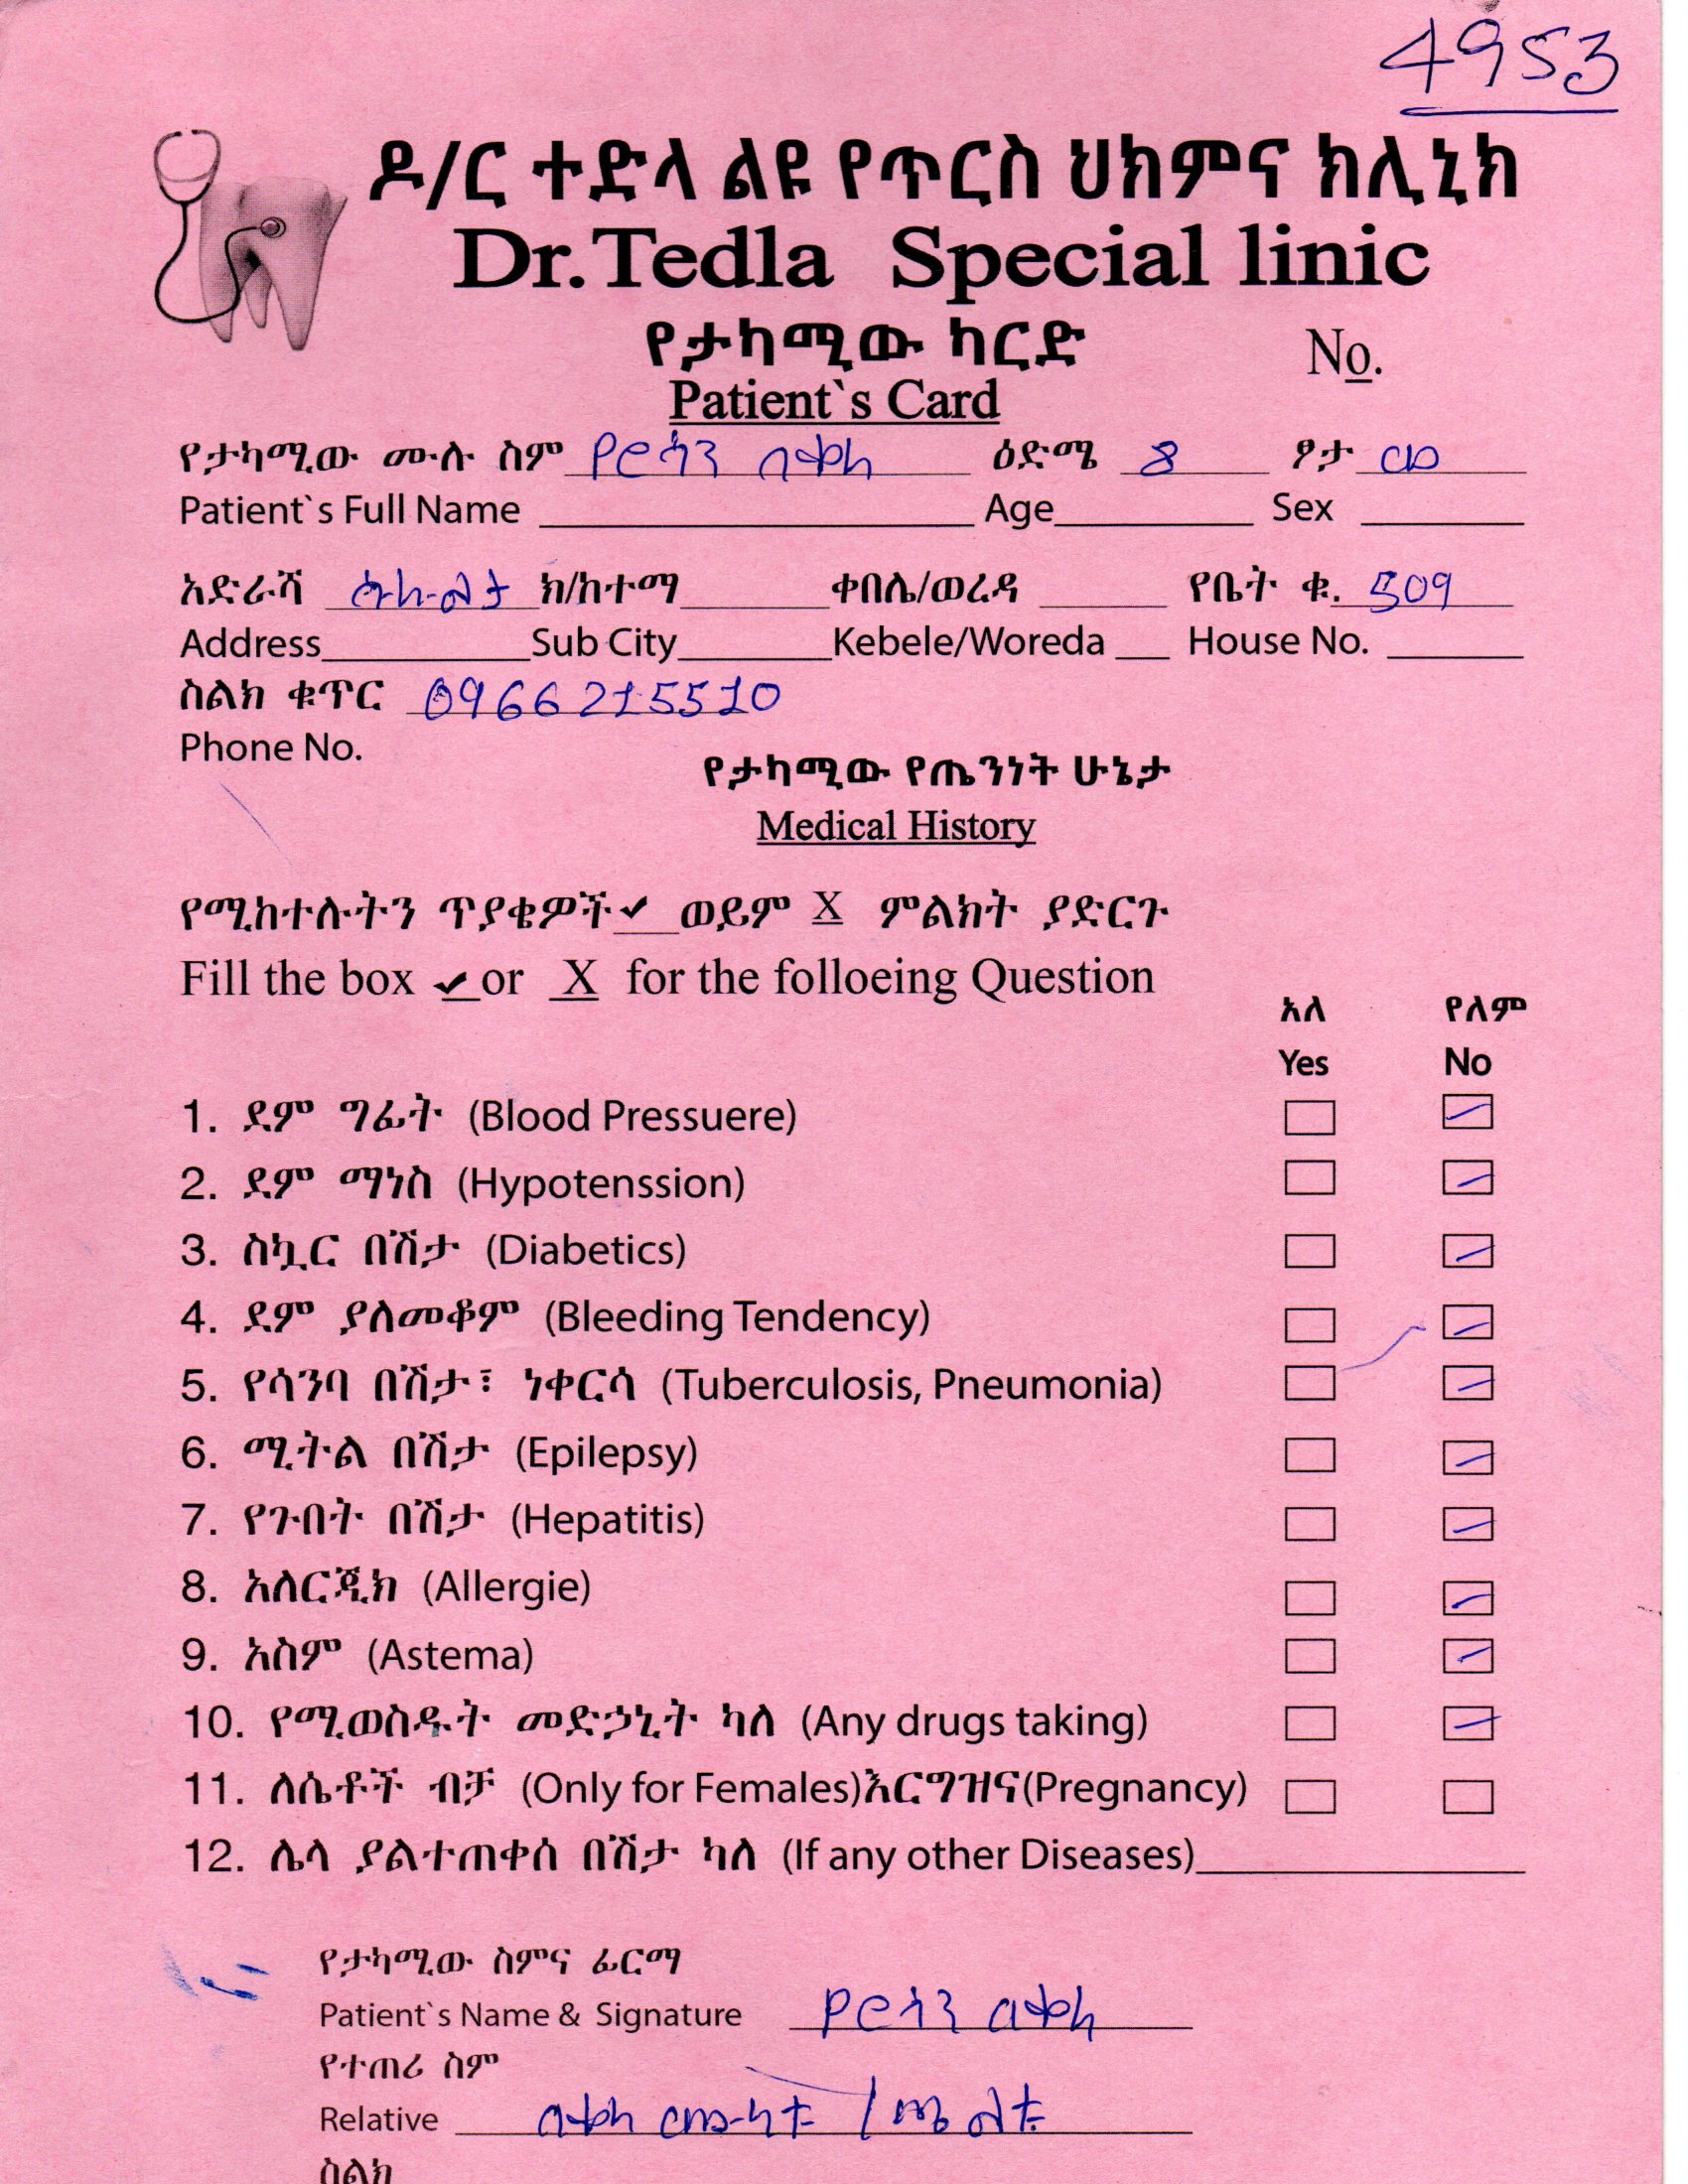 4953
ዶ/ር ተድላ ልዩ የጥርስ ህክምና ክሊኒክ
Dr.Tedla Special linic
የታካሚው ካርድ No.
Patient`s Card
የታካሚው ሙሉ ስም ዕድሜ 8 ፆታ
Patient`s Full Name Age Sex
አድራሻ ክ/ከተማ ቀበሌ/ወረዳ የቤት ቁ. 509
Address Sub City Kebele/Woreda House No.
ስልክ ቁጥር 0966215510
Phone No.
የታካሚው የጤንነት ሁኔታ
Medical History
የሚከተሉትን ጥያቄዎች ✓ ወይም X ምልክት ያድርጉ
Fill the box ✓ or X for the folloeing Question
አለ የለም
Yes No
1. ደም ግፊት (Blood Pressuere)
2. ደም ማነስ (Hypotenssion)
3. ስኳር በሽታ (Diabetics)
4. ደም ያለመቆም (Bleeding Tendency)
5. የሳንባ በሽታ፣ ነቀርሳ (Tuberculosis, Pneumonia)
6. ሚትል በሽታ (Epilepsy)
7. የጉበት በሽታ (Hepatitis)
8. አለርጂክ (Allergie)
9. አስም (Astema)
10. የሚወስዱት መድኃኒት ካለ (Any drugs taking)
11. ለሴቶች ብቻ (Only for Females)እርግዝና(Pregnancy)
12. ሌላ ያልተጠቀሰ በሽታ ካለ (If any other Diseases)
የታካሚው ስምና ፊርማ
Patient`s Name & Signature
የተጠሪ ስም
Relative
ስልክ